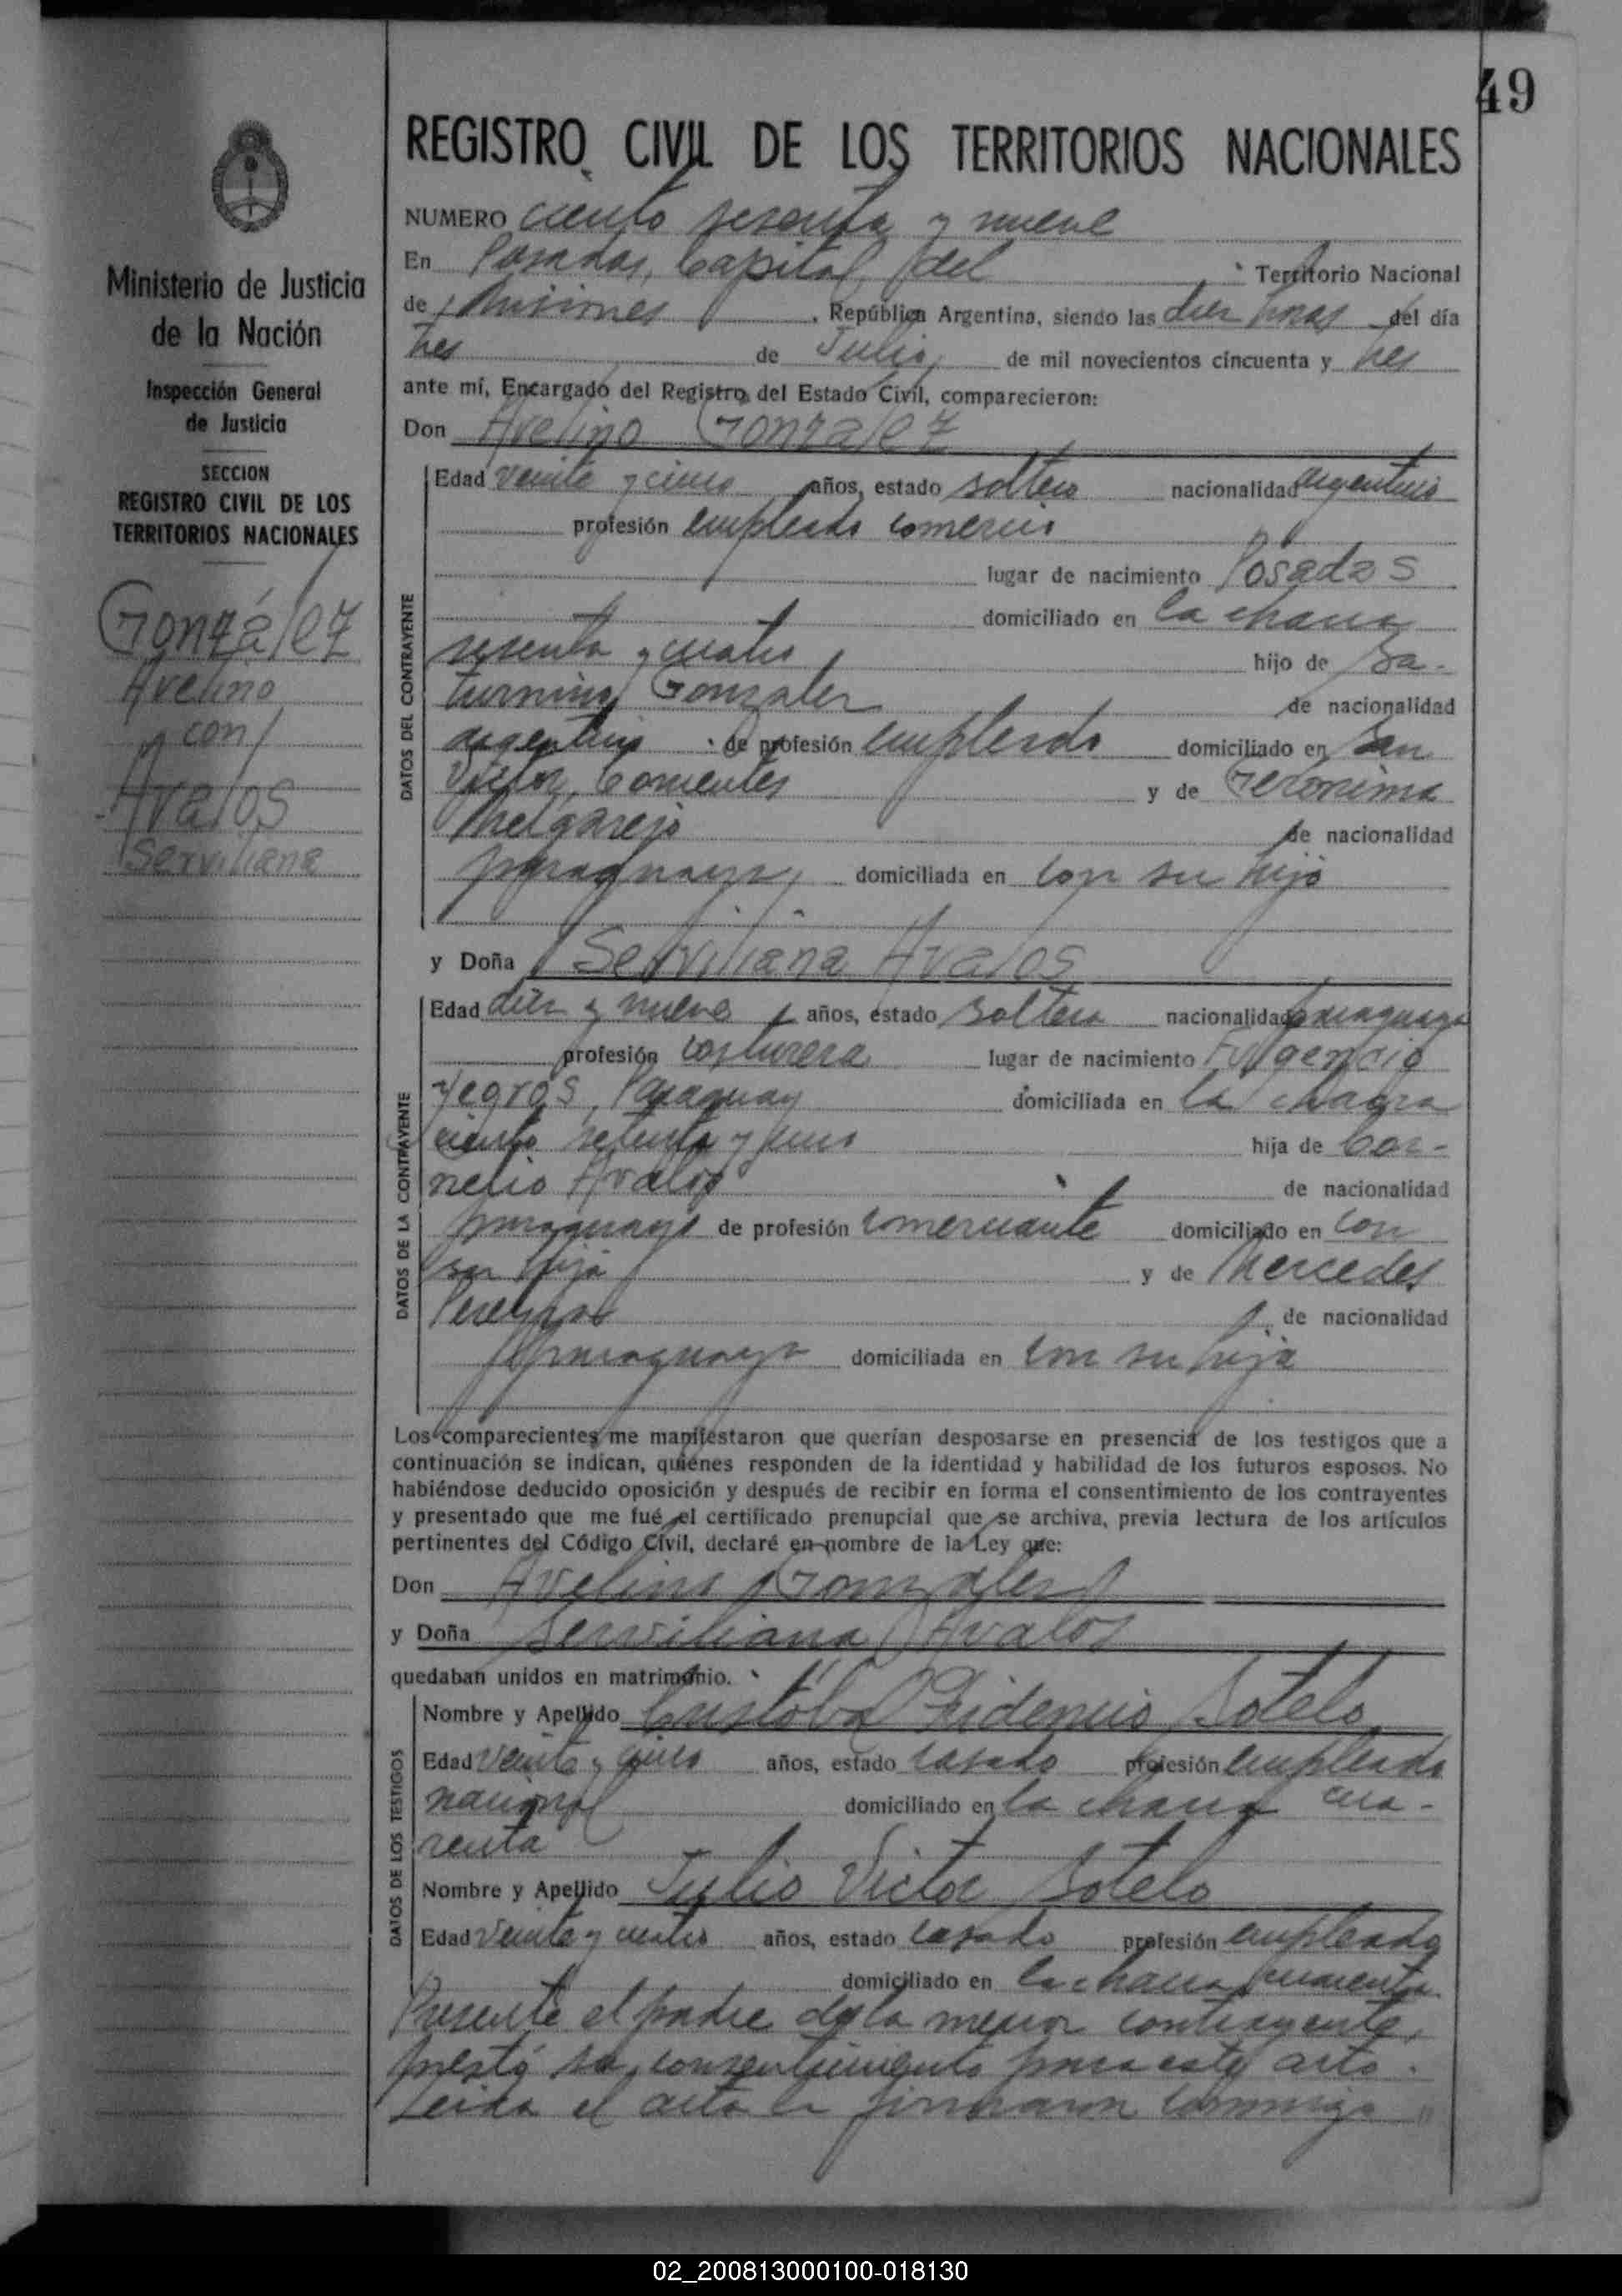 49
REGISTRO CIVIL DE LOS TERRITORIOS NACIONALES
Ministerio de Justicia
de la Nación
Inspección General
de Justicia
SECCION
REGISTRO CIVIL DE LOS
TERRITORIOS NACIONALES
González
Avelino
con
Avalos
Serviliana
NUMERO ciento sesenta y nueve
En Posadas, Capital del Territorio Nacional
de Misiones, República Argentina, siendo las diez horas del día
tres de Julio de mil novecientos cincuenta y tres
ante mí, Encargado del Registro del Estado Civil, comparecieron:
Don Avelino Gonzalez
DATOS DEL CONTRAYENTE
Edad veinte y cinco años, estado soltero nacionalidad argentino
profesión empleado comercio
lugar de nacimiento Posadas
domiciliado en la chacra
sesenta y cuatro hijo de Sa-
turnino Gonzalez de nacionalidad
argentino de profesión empleado domiciliado en San
Victor, Corrientes y de Geronima
Melgarejo de nacionalidad
paraguaya, domiciliada en con su hijo
y Doña Serviliana Avalos
DATOS DE LA CONTRAYENTE
Edad diez y nueve años, estado soltera nacionalidad paraguaya
profesión costurera lugar de nacimiento Fulgencio
Yegros, Paraguay domiciliada en la chacra
ciento setenta y cinco hija de Cor-
nelio Avalos de nacionalidad
paraguayo de profesión comerciante domiciliado en con
su hija y de Mercedes
Pereyra de nacionalidad
paraguaya domiciliada en con su hija
Los comparecientes me manifestaron que querían desposarse en presencia de los testigos que a
continuación se indican, quiénes responden de la identidad y habilidad de los futuros esposos. No
habiéndose deducido oposición y después de recibir en forma el consentimiento de los contrayentes
y presentado que me fué el certificado prenupcial que se archiva, previa lectura de los artículos
pertinentes del Código Civil, declaré en nombre de la Ley que:
Don Avelino Gonzalez
y Doña Serviliana Avalos
quedaban unidos en matrimonio.
DATOS DE LOS TESTIGOS
Nombre y Apellido Fidencio Sotelo
Edad veinte y cinco años, estado casado profesión empleado
nacional domiciliado en la chacra cua-
renta
Nombre y Apellido Julio Victor Sotelo
Edad veinte y cuatro años, estado casado profesión empleado
domiciliado en la chacra cuarenta.
Presente el padre de la menor contrayente,
prestó su consentimiento para este acto.
Leida el acta la firmaron conmigo
02_200813000100-018130